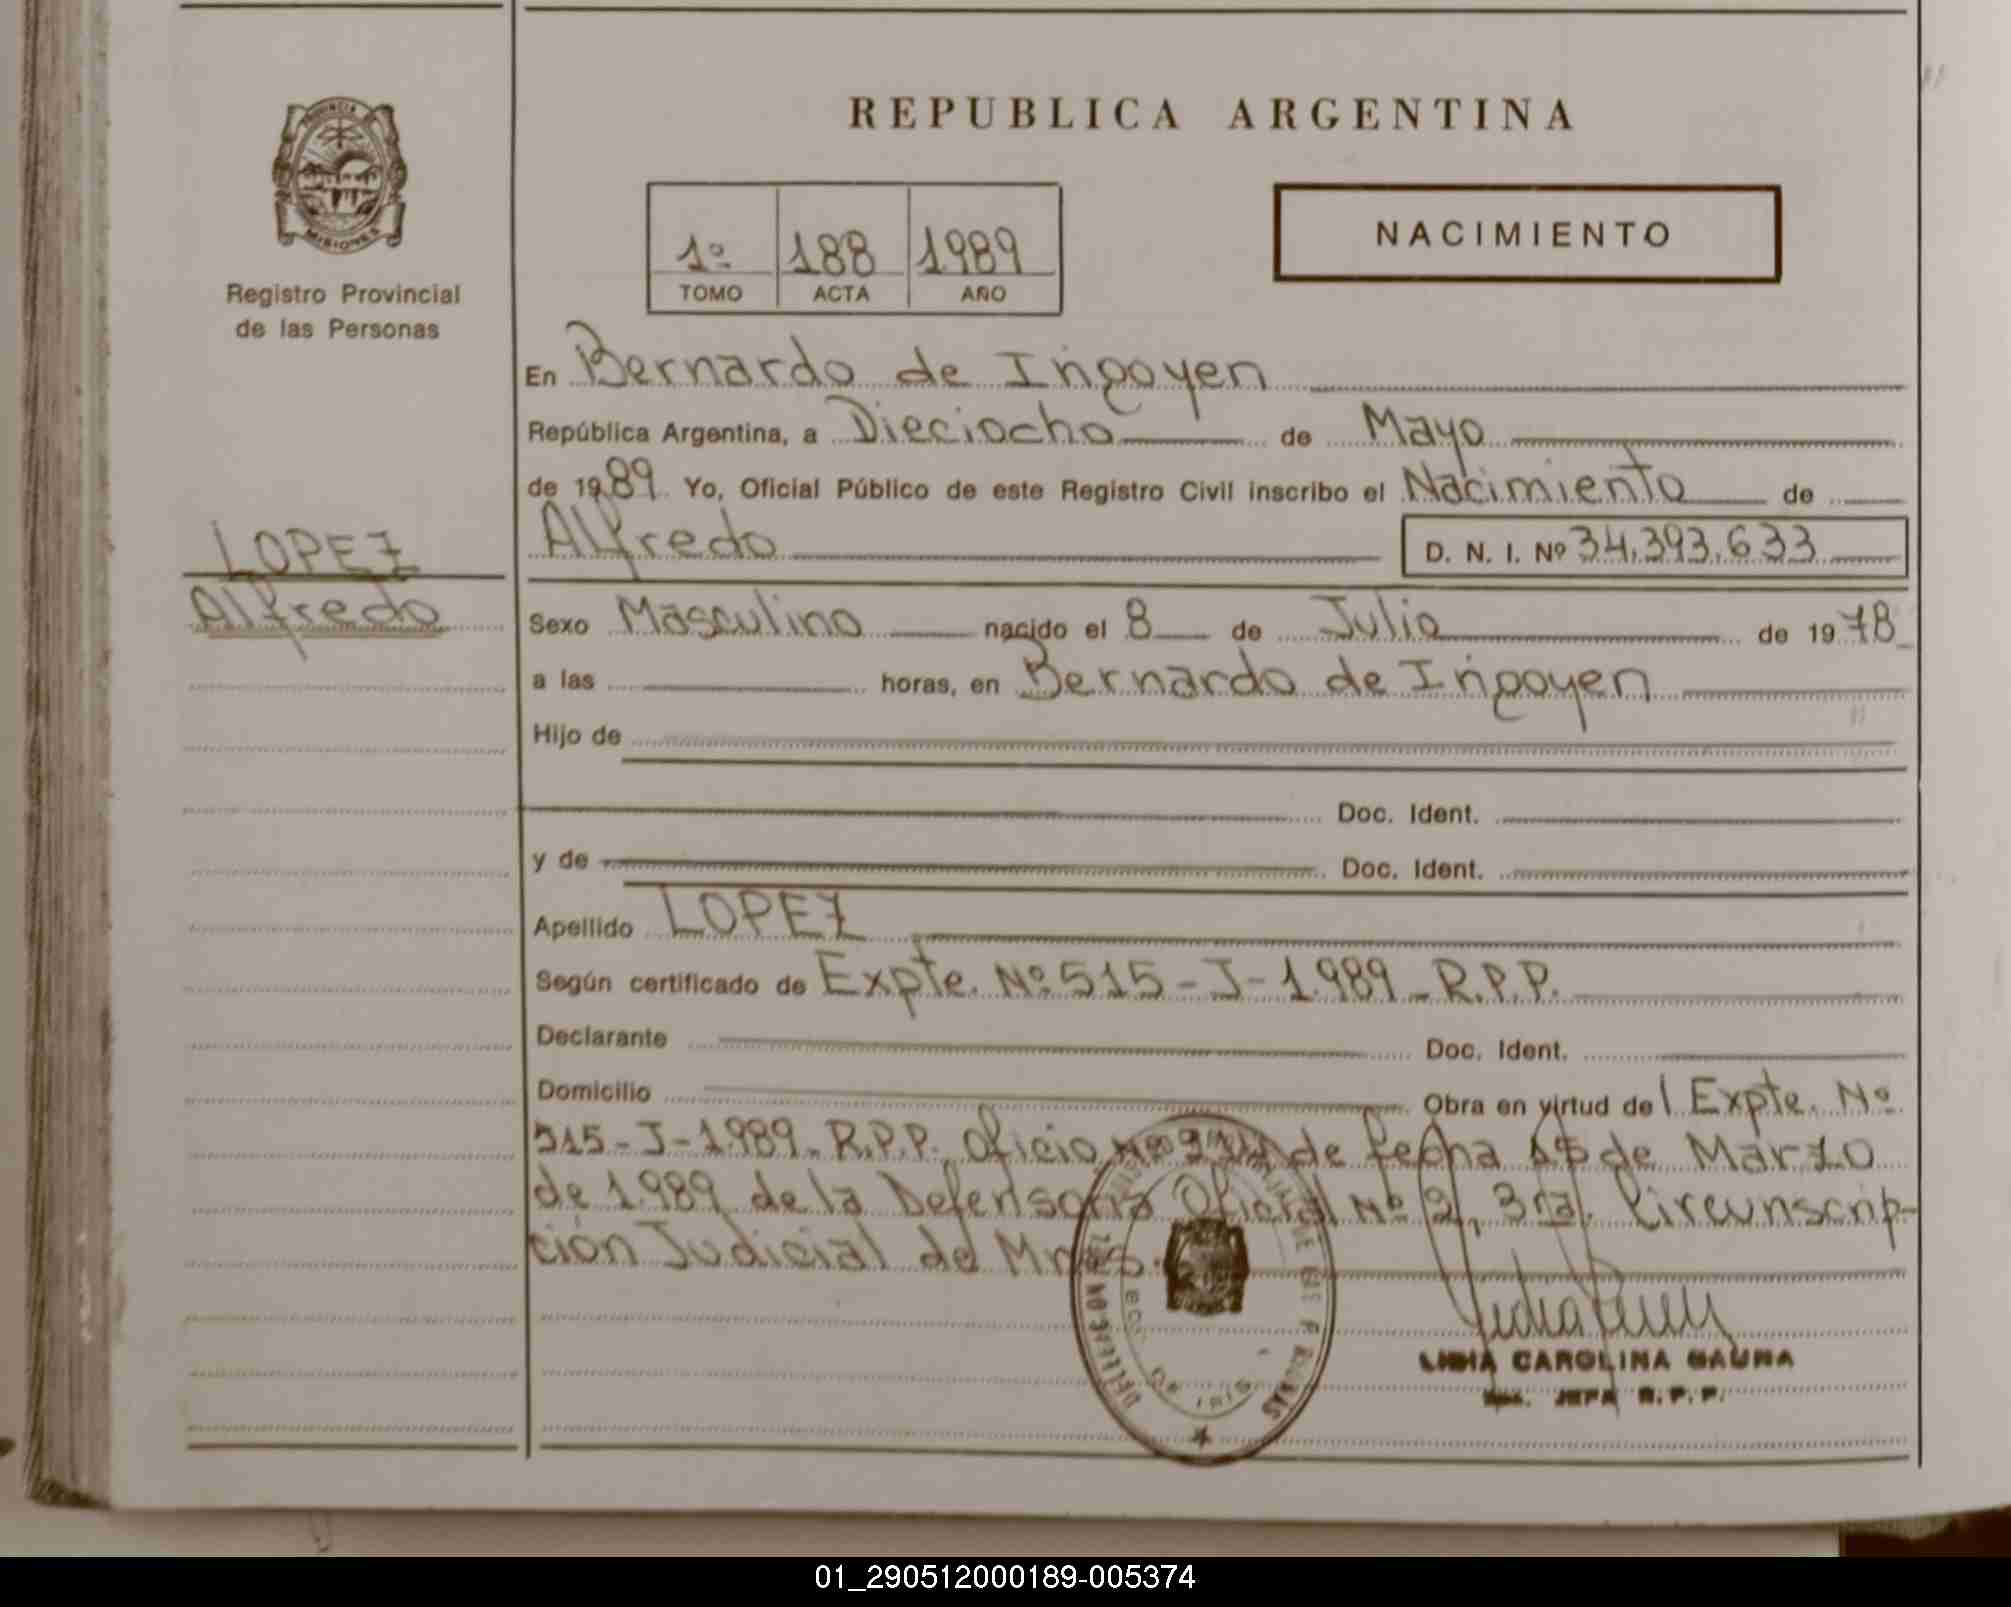 REPUBLICA ARGENTINA
PROVINCIA
MISIONES
Registro Provincial
de las Personas
1º 188 1989
TOMO ACTA AÑO
NACIMIENTO
En Bernardo de Irigoyen
República Argentina, a Dieciocho de Mayo
de 1989 Yo, Oficial Público de este Registro Civil inscribo el Nacimiento de
LOPEZ
Alfredo
Alfredo D. N. I. Nº 34,393,633
Sexo Masculino nacido el 8 de Julio de 1978
a las horas, en Bernardo de Irigoyen
Hijo de
Doc. Ident.
y de Doc. Ident.
Apellido LOPEZ
Según certificado de Expte. Nº 515-J-1.989-R.P.P.
Declarante Doc. Ident.
Domicilio Obra en virtud del Expte. Nº
515-J-1.989-R.P.P. Oficio Nº de fecha de Marzo
de 1.989 de la Defensoria Oficial Nº 2, 3ra. Circunscrip-
ción Judicial de Mnes.
LIDIA CAROLINA GAUNA
JEFA R.P.P.
01_290512000189-005374